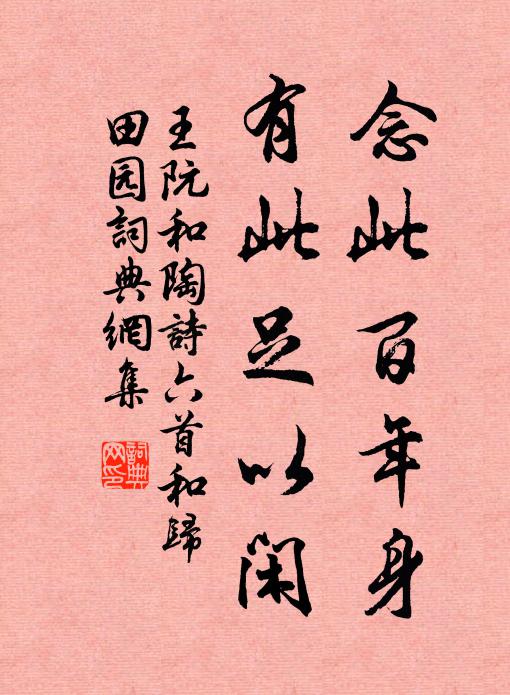 念此百年身
有此足以闲
王阮和陶詩六首和歸
田园詞典網集
詞典网印